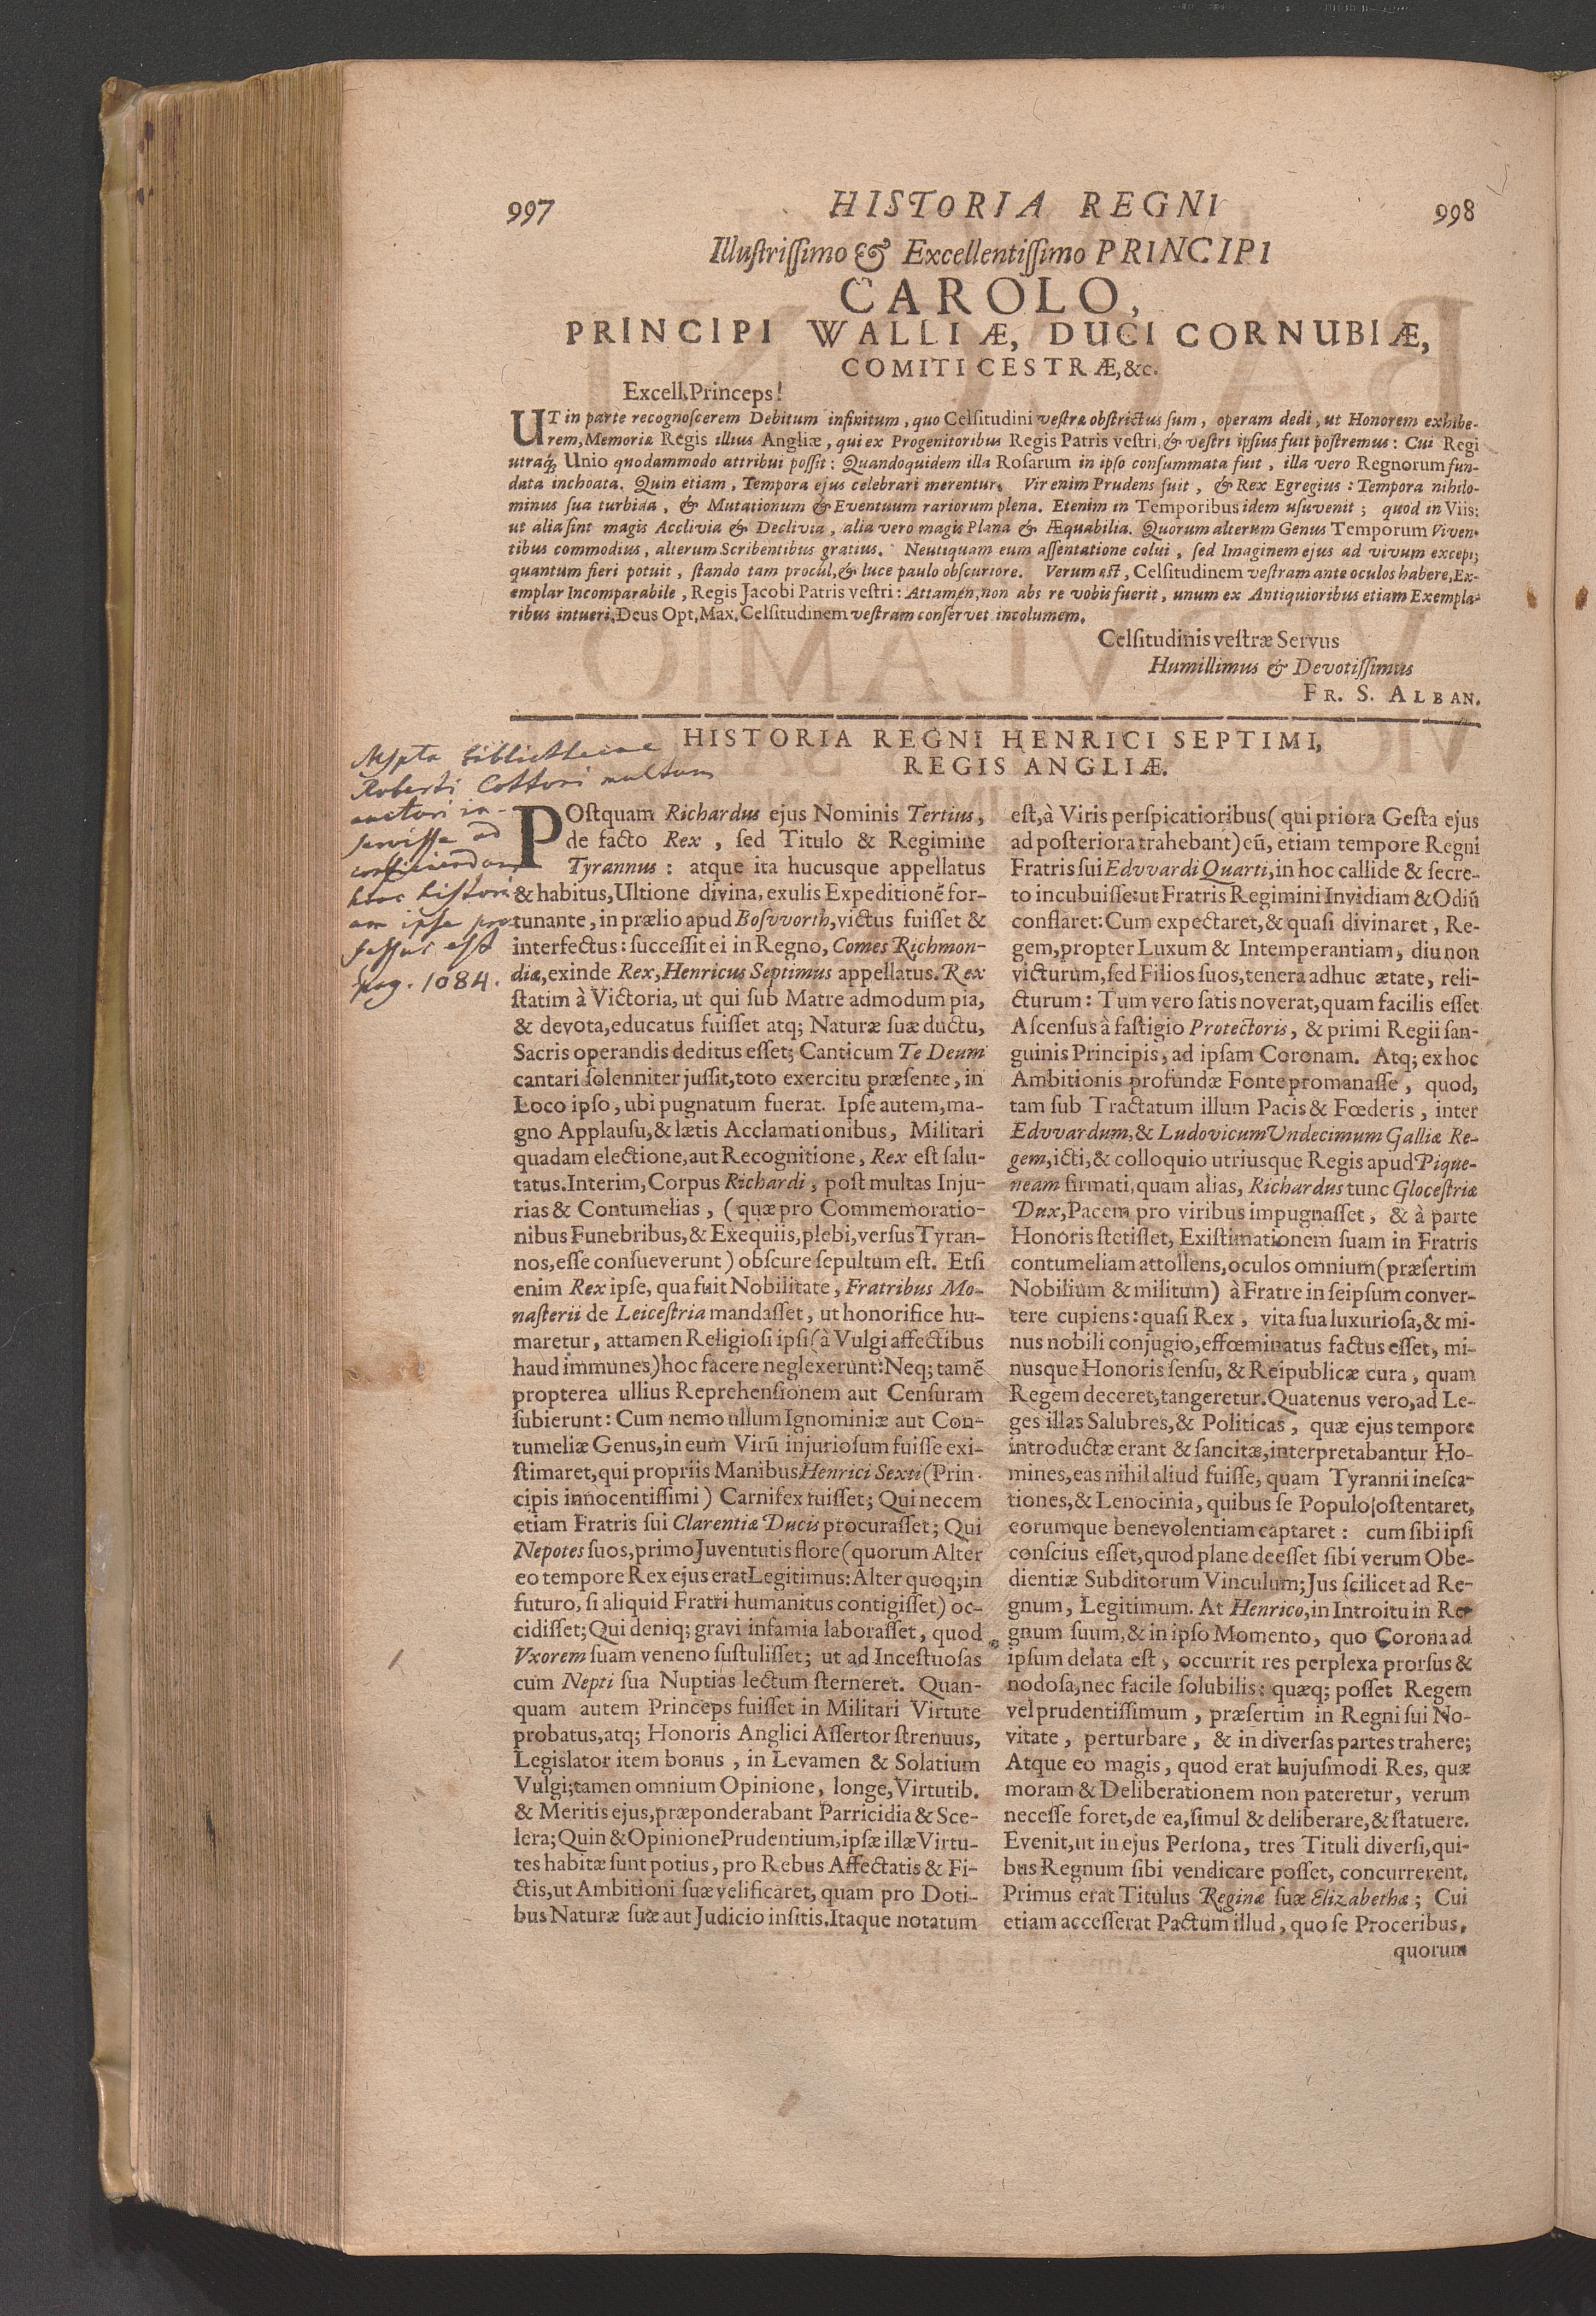 997 HISTORIA REGNI 998
Illustrissimo & Excellentissimo PRINCIPI
CAROLO,
PRINCIPI WALLIÆ, DUCI CORNUBIÆ,
COMITI CESTRÆ, &c.
Excell. Princeps!
UT in parte recognoscerem Debitum infinitum, quo Celsitudini vestræ obstrictus sum, operam dedi, ut Honorem exhibe-
rem, Memoriæ Regis illius Angliæ, qui ex Progenitoribus Regis Patris vestri, & vestri ipsius fuit postremus: Cui Regi
utraq; Unio quodammodo attribui possit: Quandoquidem illa Rosarum in ipso consummata fuit, illa vero Regnorum fun-
data inchoata. Quin etiam, Tempora ejus celebrari merentur. Vir enim Prudens fuit, & Rex Egregius: Tempora nihilo-
minus sua turbida, & Mutationum & Eventuum rariorum plena. Etenim in Temporibus idem usuvenit; quod in Viis;
ut alia sint magis Acclivia & Declivia, alia vero magis Plana & Æquabilia. Quorum alterum Genus Temporum Viven-
tibus commodius, alterum Scribentibus gratius. Neutiquam eum assentatione colui, sed Imaginem ejus ad vivum excepi;
quantum fieri potuit, stando tam procul, & luce paulo obscuriore. Verum est, Celsitudinem vestram ante oculos habere, Ex-
emplar Incomparabile, Regis Jacobi Patris vestri: Attamen, non abs re vobis fuerit, unum ex Antiquioribus etiam Exempla-
ribus intueri, Deus Opt. Max. Celsitudinem vestram conservet incolumem.
Celsitudinis vestræ Servus
Humillimus & Devotissimus
FR. S. ALBAN.
HISTORIA REGNI HENRICI SEPTIMI,
REGIS ANGLIÆ.
Mspta bibliothecae
Roberti Cottoni multum
auctori in-
servisse ad
conficiendam
hanc histori-
am ipse pro-
fessus est
pag. 1084.
POstquam Richardus ejus Nominis Tertius,
de facto Rex, sed Titulo & Regimine
Tyrannus: atque ita hucusque appellatus
& habitus, Ultione divina, exulis Expeditionẽ for-
tunante, in prælio apud Bosvvorth, victus fuisset &
interfectus: successit ei in Regno, Comes Richmon-
diæ, exinde Rex, Henricus Septimus appellatus. Rex
statim à Victoria, ut qui sub Matre admodum pia,
& devota, educatus fuisset atq; Naturæ suæ ductu,
Sacris operandis deditus esset; Canticum Te Deum
cantari solenniter jussit, toto exercitu præsente, in
Loco ipso, ubi pugnatum fuerat. Ipse autem, ma-
gno Applausu, & lætis Acclamationibus, Militari
quadam electione, aut Recognitione, Rex est salu-
tatus. Interim, Corpus Richardi, post multas Inju-
rias & Contumelias, (quæ pro Commemoratio-
nibus Funebribus, & Exequiis, plebi, versus Tyran-
nos, esse consueverunt) obscure sepultum est. Etsi
enim Rex ipse, qua fuit Nobilitate, Fratribus Mo-
nasterii de Leicestria mandasset, ut honorifice hu-
maretur, attamen Religiosi ipsi (à Vulgi affectibus
haud immunes) hoc facere neglexerunt: Neq; tamẽ
propterea ullius Reprehensionem aut Censuram
subierunt: Cum nemo ullum Ignominiæ aut Con-
tumeliæ Genus, in eum Virũ injuriosum fuisse exi-
stimaret, qui propriis Manibus Henrici Sexti (Prin-
cipis innocentissimi) Carnifex fuisset; Qui necem
etiam Fratris sui Clarentiæ Ducis procurasset; Qui
Nepotes suos, primo Juventutis flore (quorum Alter
eo tempore Rex ejus erat Legitimus: Alter quoq; in
futuro, si aliquid Fratri humanitus contigisset) oc-
cidisset; Qui deniq; gravi infamia laborasset, quod
Vxorem suam veneno sustulisset; ut ad Incestuosas
cum Nepti sua Nuptias lectum sterneret. Quan-
quam autem Princeps fuisset in Militari Virtute
probatus, atq; Honoris Anglici Assertor strenuus,
Legislator item bonus, in Levamen & Solatium
Vulgi; tamen omnium Opinione, longe, Virtutib.
& Meritis ejus, præponderabant Parricidia & Sce-
lera; Quin & Opinione Prudentium, ipsæ illæ Virtu-
tes habitæ sunt potius, pro Rebus Affectatis & Fi-
ctis, ut Ambitioni suæ velificaret, quam pro Doti-
bus Naturæ suæ aut Judicio insitis. Itaque notatum
est, à Viris perspicatioribus (qui priora Gesta ejus
ad posteriora trahebant) eũ, etiam tempore Regni
Fratris sui Edvvardi Quarti, in hoc callide & secre-
to incubuisse: ut Fratris Regimini Invidiam & Odiũ
conflaret: Cum expectaret, & quasi divinaret, Re-
gem, propter Luxum & Intemperantiam, diu non
victurum, sed Filios suos, tenera adhuc ætate, reli-
cturum: Tum vero satis noverat, quam facilis esset
Ascensus à fastigio Protectoris, & primi Regii san-
guinis Principis, ad ipsam Coronam. Atq; ex hoc
Ambitionis profundæ Fonte promanasse, quod,
tam sub Tractatum illum Pacis & Fœderis, inter
Edvvardum, & Ludovicum Undecimum Galliæ Re-
gem, icti, & colloquio utriusque Regis apud Pique-
neam firmati, quam alias, Richardus tunc Glocestriæ
Dux, Pacem pro viribus impugnasset, & à parte
Honoris stetisset, Existimationem suam in Fratris
contumeliam attollens, oculos omnium (præsertim
Nobilium & militum) à Fratre in seipsum conver-
tere cupiens: quasi Rex, vita sua luxuriosa, & mi-
nus nobili conjugio, effœminatus factus esset, mi-
nusque Honoris sensu, & Reipublicæ cura, quam
Regem deceret, tangeretur. Quatenus vero, ad Le-
ges illas Salubres, & Politicas, quæ ejus tempore
introductæ erant & sancitæ, interpretabantur Ho-
mines, eas nihil aliud fuisse, quam Tyranni inesca-
tiones, & Lenocinia, quibus se Populo ostentaret,
eorumque benevolentiam captaret: cum sibi ipsi
conscius esset, quod plane deesset sibi verum Obe-
dientiæ Subditorum Vinculum; Jus scilicet ad Re-
gnum, Legitimum. At Henrico, in Introitu in Re-
gnum suum, & in ipso Momento, quo Corona ad
ipsum delata est, occurrit res perplexa prorsus &
nodosa, nec facile solubilis: quæq; posset Regem
vel prudentissimum, præsertim in Regni sui No-
vitate, perturbare, & in diversas partes trahere;
Atque eo magis, quod erat hujusmodi Res, quæ
moram & Deliberationem non pateretur, verum
necesse foret, de ea, simul & deliberare, & statuere.
Evenit, ut in ejus Persona, tres Tituli diversi, qui-
bus Regnum sibi vendicare posset, concurrerent.
Primus erat Titulus Reginæ suæ Elizabethæ; Cui
etiam accesserat Pactum illud, quo se Proceribus,
quorum